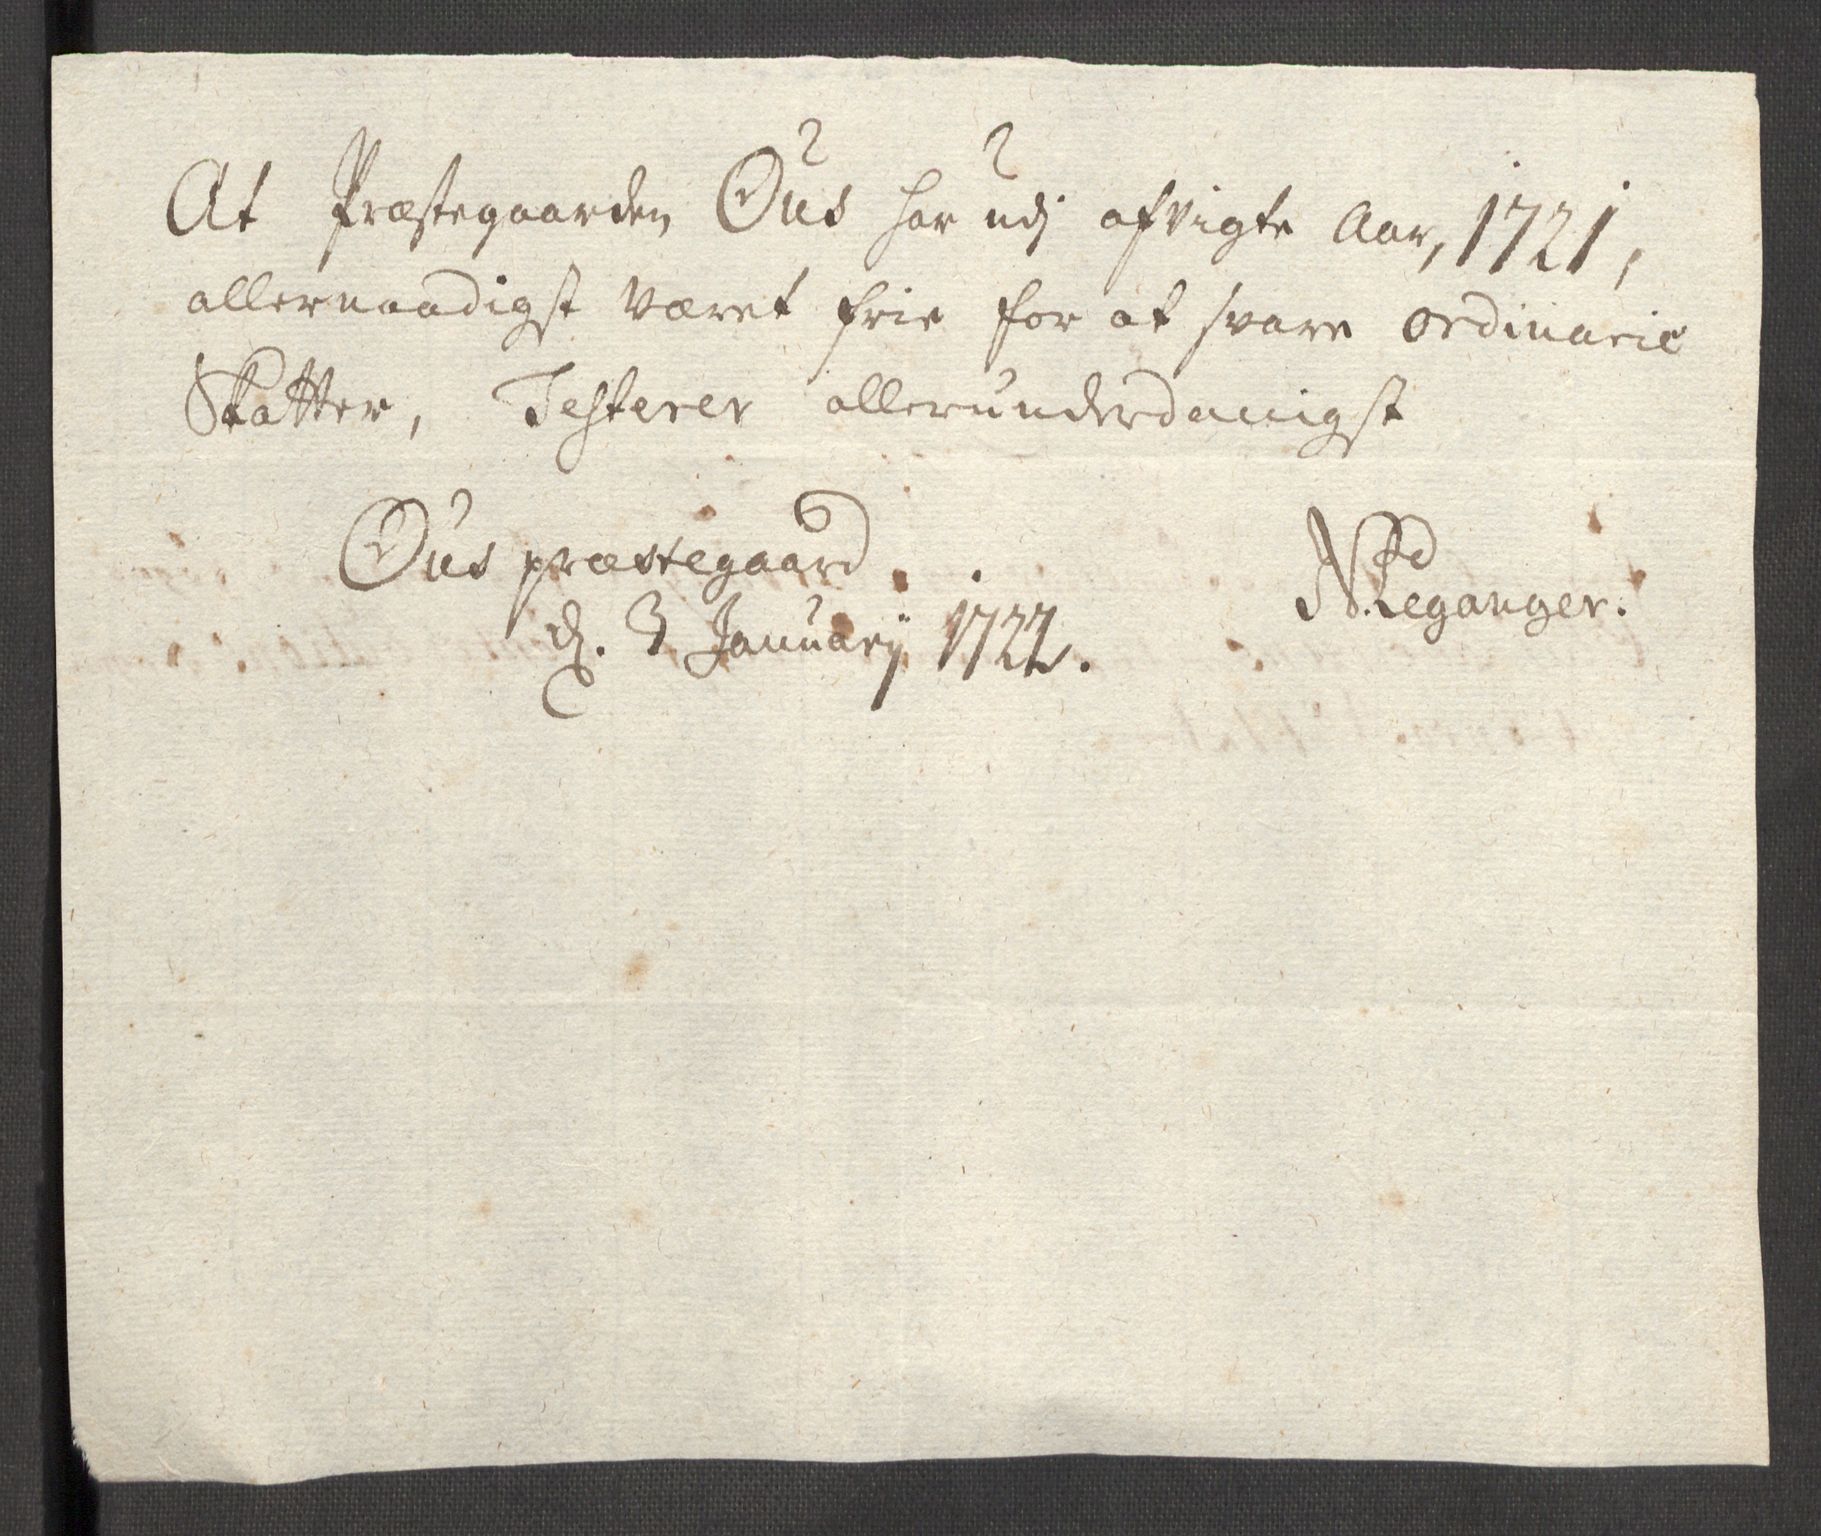 At Præstegaarden Øus har udj afvigte Aar, 1721,
allernaadigst været frie for at svare ordinarie
Skatter, Testerer allerunderdanigst
Øus præstegaard
d. 3 Januarij 1722.
Leganger.